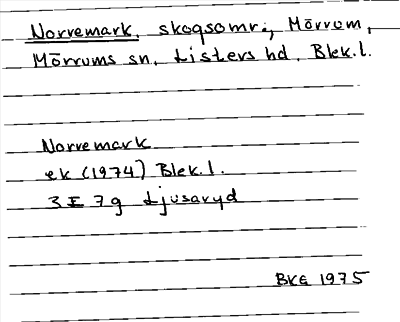 Norremark, skogsomr., Mörrum,
Mörrums sn, Listers hd, Blek.l.
Norremark
ek (1974) Blek.l.
3E 7g Ljusaryd
BKE 1975